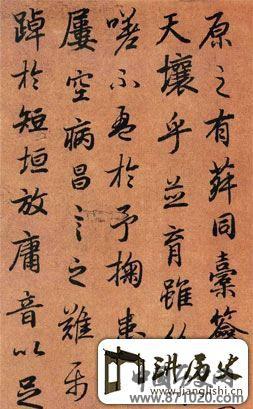 原之有菽同橐籥
天壤乎並育雖紛
嗟不盈於予掬患
屢空病昌言之難
踔於短垣放庸音以足
讲历史
www.jianglishi.cn
www.871020.com